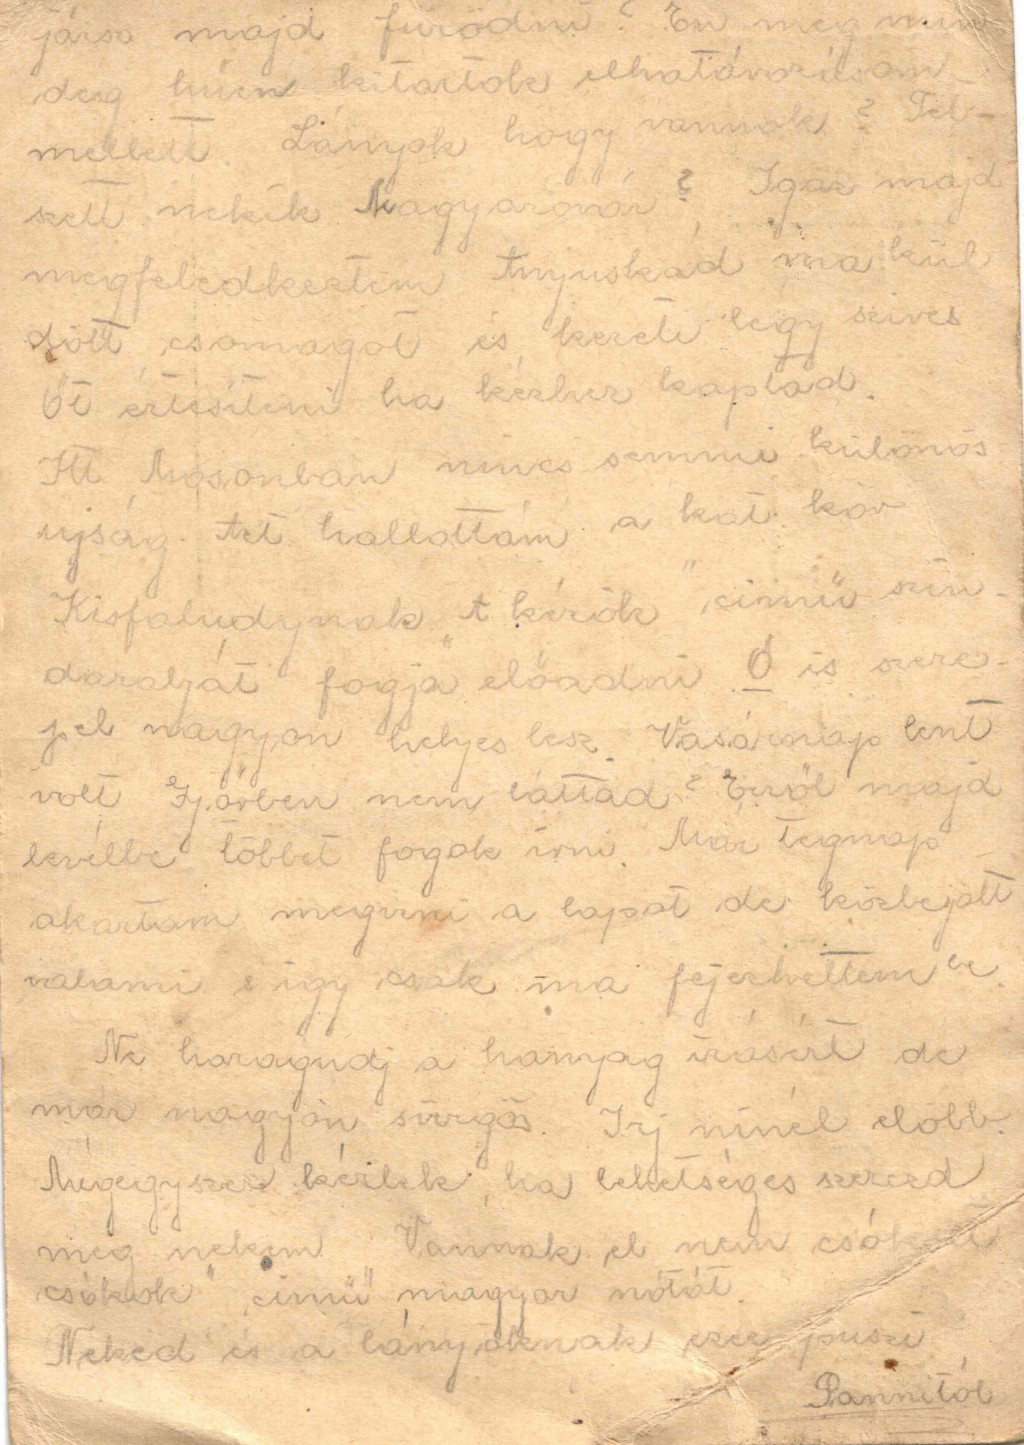 jársz majd fürödni? Én meg min
deg hűen kitartok elhatározásom
mellett. Lányok hogy vannak? Tet-
szett nekik Magyaróvár? Igaz majd
megfeledkeztem Anyuskád ma kül
dött csomagot és kereti légy szives
Őt értesíteni ha kézhez kaptad.
Itt Mosonban nincs semmi különös
ujság. Azt hallottam a kat. kör
Kisfaludynak "A kérők" című szín-
darabját fogja előadni Ő is szere-
pel nagyon helyes lesz. Vasárnap lent
volt Győrben nem láttad? Erről majd
levélbe többet fogok írni. Már tegnap
akartam megírni a lapot de közbejött
valami s így csak ma fejezhettem be.
Ne haragudj a hanyag írásért de
már nagyon sürgős. Irj minél előbb.
Mégegyszer kérlek, ha lehetséges szerezd
meg nekem Vannak el nem csókolt
csókok" című magyar nótát.
Neked és a lányoknak ezer puszi
Pannitól